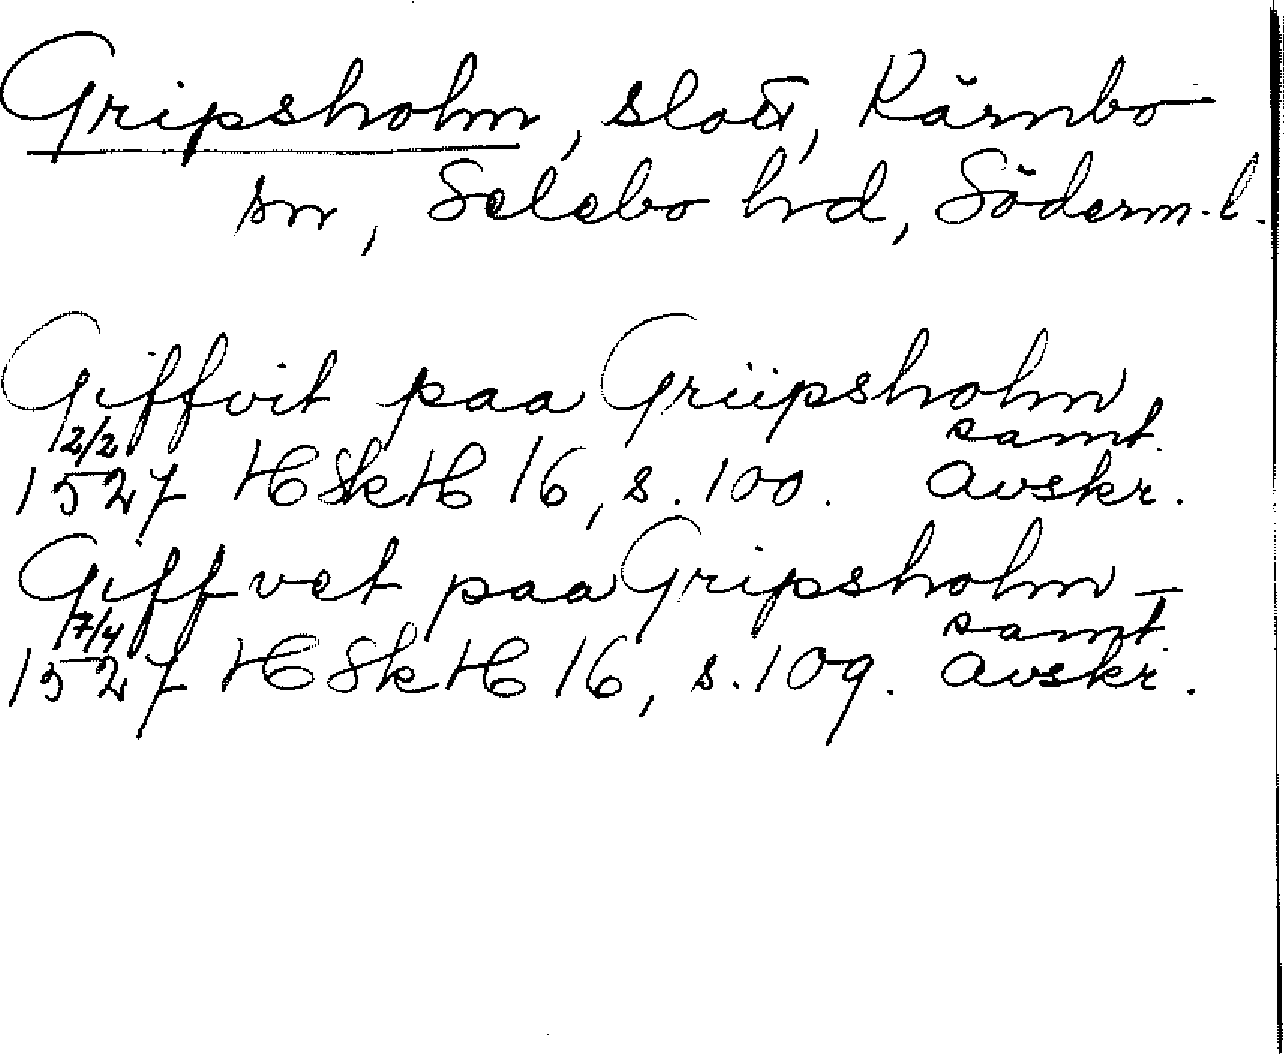 Gripsholm, slott, Kärnbo
sn, Selebo hrd, Söderm.l.
Giffvit paa Griipsholm
2/2 samt.
1527 HSkH 16, s. 100. avskr.
Giffvet paa Gripsholm –
17/4 samt.
1527 HSkH 16, s. 109. avskr.